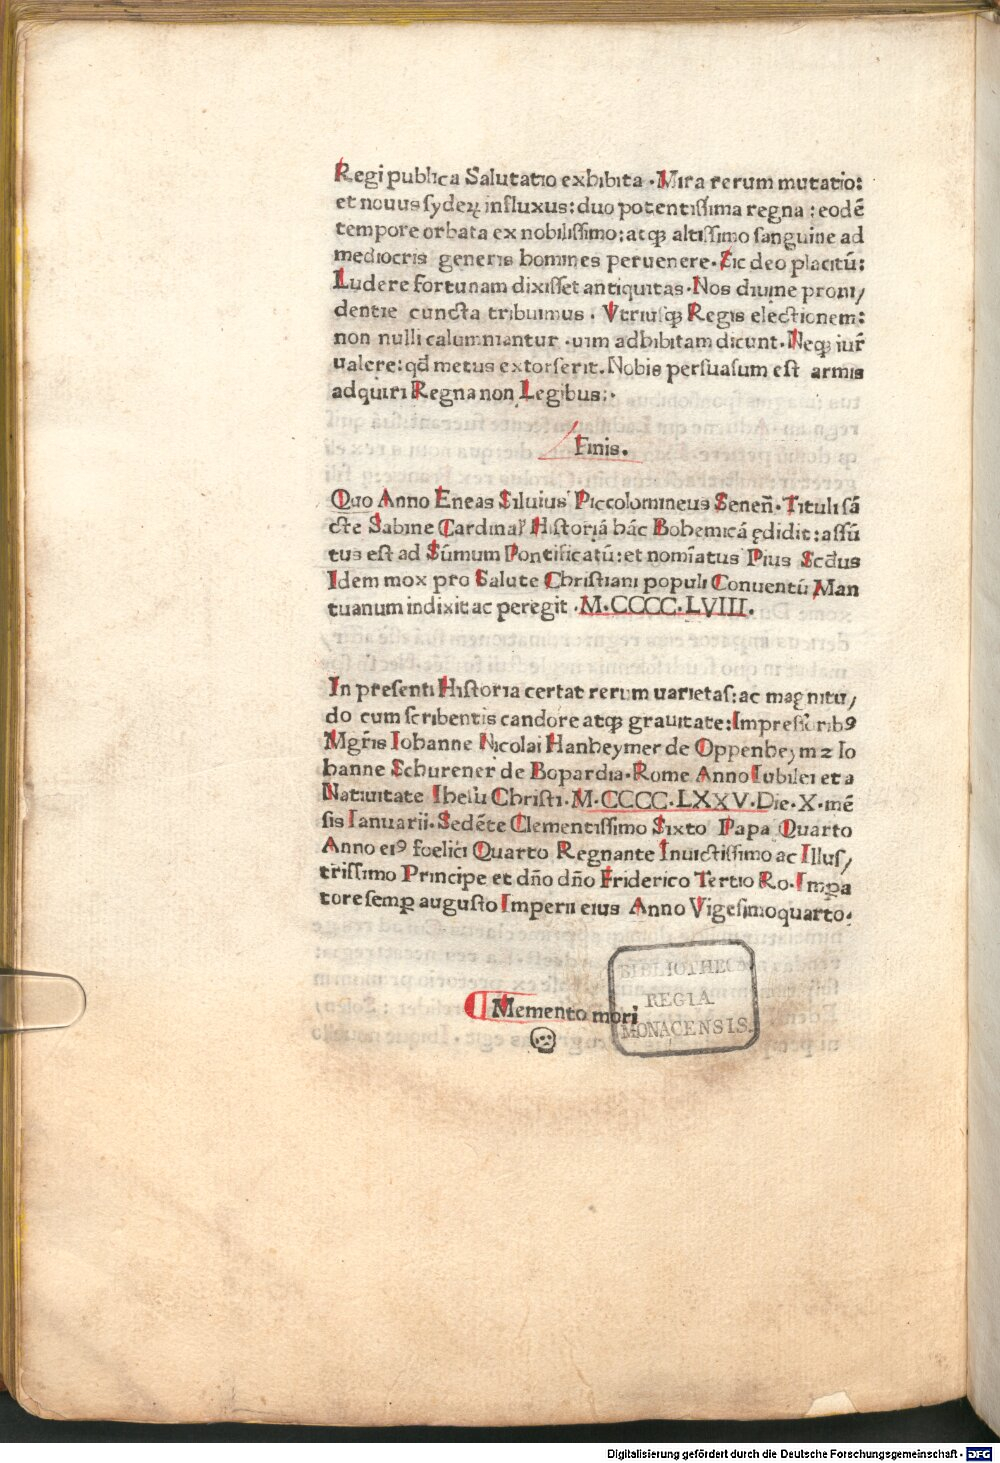 Regi publica Salutatio exhibita · Mira rerum mutatio:
et nouus syderꝝ influxus: duo potentissima regna : eodē
tempore orbata ex nobilissimo: atqꝫ altissimo sanguine ad
mediocris generis homines peruenere· Sic deo placitū:
Ludere fortunam dixisset antiquitas· Nos diuine proui/
dentie cuncta tribuimus · Vtriusqꝫ Regis electionem:
non nulli calumniantur · uim adhibitam dicunt· Neqꝫ iur̄
ualere: qd̄ metus extorserit. Nobis persuasum est armis
adquiri Regna non Legibus:·
Finis.
Quo Anno Eneas Siluius Piccolomineus Seneñ· Tituli sā
cte Sabine Cardinal' Historiā hāc Bohemicā ędidit: assū
tus est ad Sūmum Pontificatū: et nomīatus Pius Scd̄us
Idem mox pro Salute Christiani populi Conuentū Man
tuanum indixit ac peregit · M·CCCC·LVIII.
In presenti Historia certat rerum uarietas: ac magnitu/
do cum scribentis candore atqꝫ grauitate: Impressōribꝰ
Mgr̄is Iohanne Nicolai Hanheymer de Oppenheym ⁊ Io
hanne Schurener de Bopardia· Rome Anno Iubilei et a
Natiuitate Ihesu Christi· M·CCCC·LXXV· Die· X· mē
sis Ianuarii· Sedēte Clementissimo Sixto Papa Quarto
Anno eiꝰ foelici Quarto Regnante Inuictissimo ac Illus/
trissimo Principe et dño dño Friderico Tertio Ro· Imꝑa
tore semꝑ augusto Imperii eius Anno Vigesimoquarto·
Memento mori
BIBLIOTHECA
REGIA
MONACENSIS.
Digitalisierung gefördert durch die Deutsche Forschungsgemeinschaft - DFG